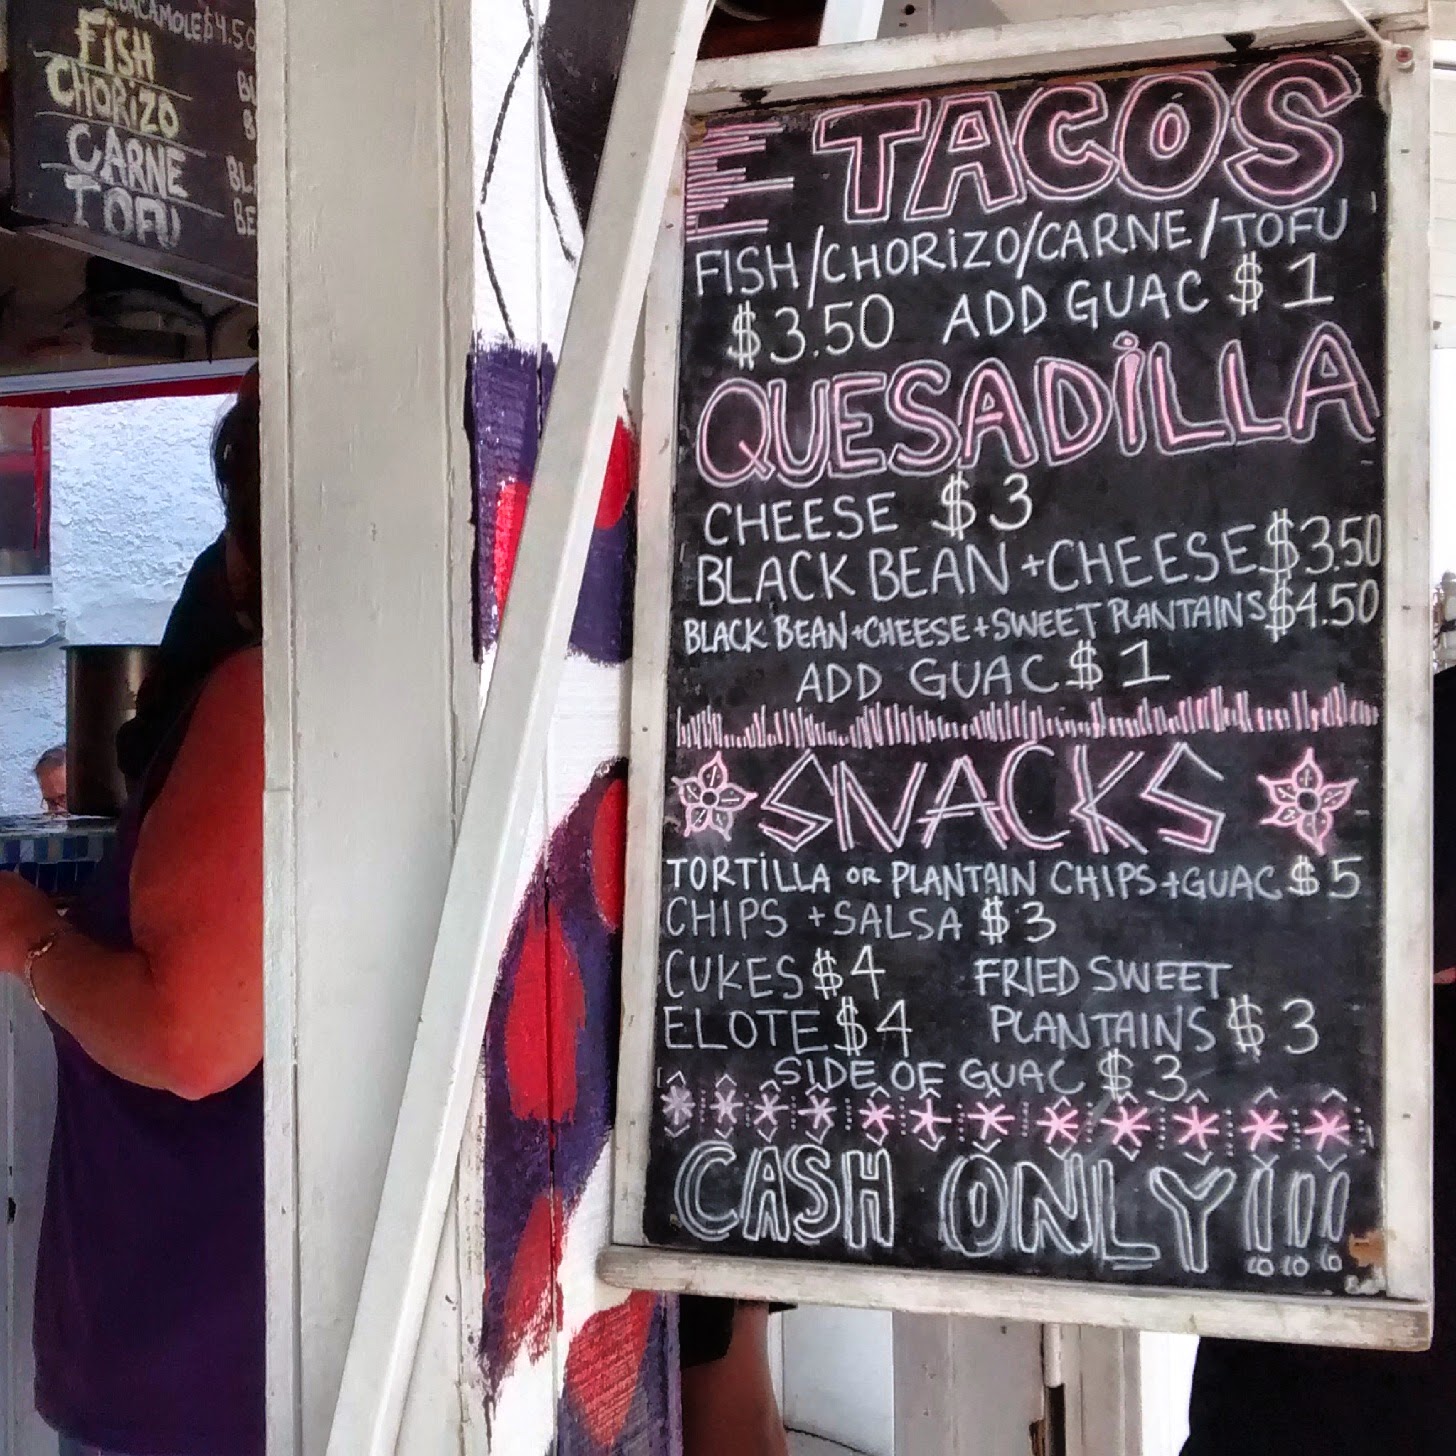 $4.50
FiSH
CHORiZO
CARNE
TOFU
TACOS
FISH/CHORiZO/CARNE/TOFU
$3.50 ADD GUAC $1
QUESADiLLA
CHEESE $3
BLACK BEAN+CHEESE $3.50
BLACK BEAN+CHEESE+SWEET PLANTAINS $4.50
ADD GUAC $1
SNACKS
TORTiLLA OR PLANTAIN CHIPS+GUAC $5
CHIPS +SALSA $3
CUKES $4 FRIED SWEET
ELOTE $4 PLANTAINS $3
SIDE OF GUAC $3
CASH ONLY!!!